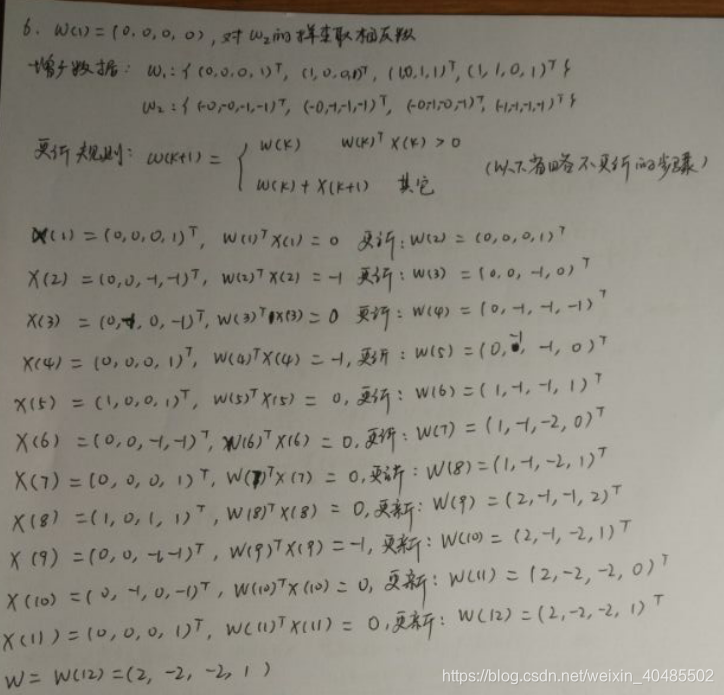 6. W(1) = (0, 0, 0, 0), 对 ω₂的样本取相反数
增广数据: ω₁: { (0,0,0,1)ᵀ, (1,0,0,1)ᵀ, (1,0,1,1)ᵀ, (1,1,0,1)ᵀ }
ω₂: { (-0,-0,-1,-1)ᵀ, (-0,-1,-1,-1)ᵀ, (-0,-1,-0,-1)ᵀ, (-1,-1,-1,-1)ᵀ }
更新规则: W(k+1) = { W(k) W(k)ᵀ X(k) > 0
(以下省略不更新的步骤)
W(k) + X(k+1) 其它
X(1) = (0,0,0,1)ᵀ, W(1)ᵀX(1) = 0 更新: W(2) = (0,0,0,1)ᵀ
X(2) = (0,0,-1,-1)ᵀ, W(2)ᵀX(2) = -1 更新: W(3) = (0,0,-1,0)ᵀ
X(3) = (0,-1,0,-1)ᵀ, W(3)ᵀX(3) = 0 更新: W(4) = (0,-1,-1,-1)ᵀ
X(4) = (0,0,0,1)ᵀ, W(4)ᵀX(4) = -1, 更新: W(5) = (0,-1,-1,0)ᵀ
X(5) = (1,0,0,1)ᵀ, W(5)ᵀX(5) = 0, 更新: W(6) = (1,-1,-1,1)ᵀ
X(6) = (0,0,-1,-1)ᵀ, W(6)ᵀX(6) = 0, 更新: W(7) = (1,-1,-2,0)ᵀ
X(7) = (0,0,0,1)ᵀ, W(7)ᵀX(7) = 0, 更新: W(8) = (1,-1,-2,1)ᵀ
X(8) = (1,0,1,1)ᵀ, W(8)ᵀX(8) = 0, 更新: W(9) = (2,-1,-1,2)ᵀ
X(9) = (0,0,-1,-1)ᵀ, W(9)ᵀX(9) = -1, 更新: W(10) = (2,-1,-2,1)ᵀ
X(10) = (0,-1,0,-1)ᵀ, W(10)ᵀX(10) = 0, 更新: W(11) = (2,-2,-2,0)ᵀ
X(11) = (0,0,0,1)ᵀ, W(11)ᵀX(11) = 0, 更新: W(12) = (2,-2,-2,1)ᵀ
W = W(12) = (2, -2, -2, 1)
https://blog.csdn.net/weixin_40485502